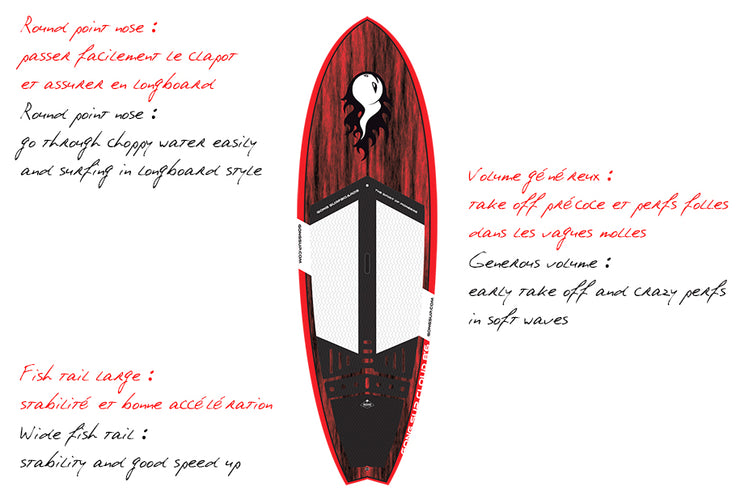 Round point nose :
passer facilement le clapot
et assurer en longboard
Round point nose :
go through choppy water easily
and surfing in longboard style
Volume généreux :
take off précoce et perfs folles
dans les vagues molles
Generous volume :
early take off and crazy perfs
in soft waves
Fish tail large :
stabilité et bonne accélération
Wide fish tail :
stability and good speed up
GONG SURFBOARDS
GONGSUP.COM
GONGSUP.COM